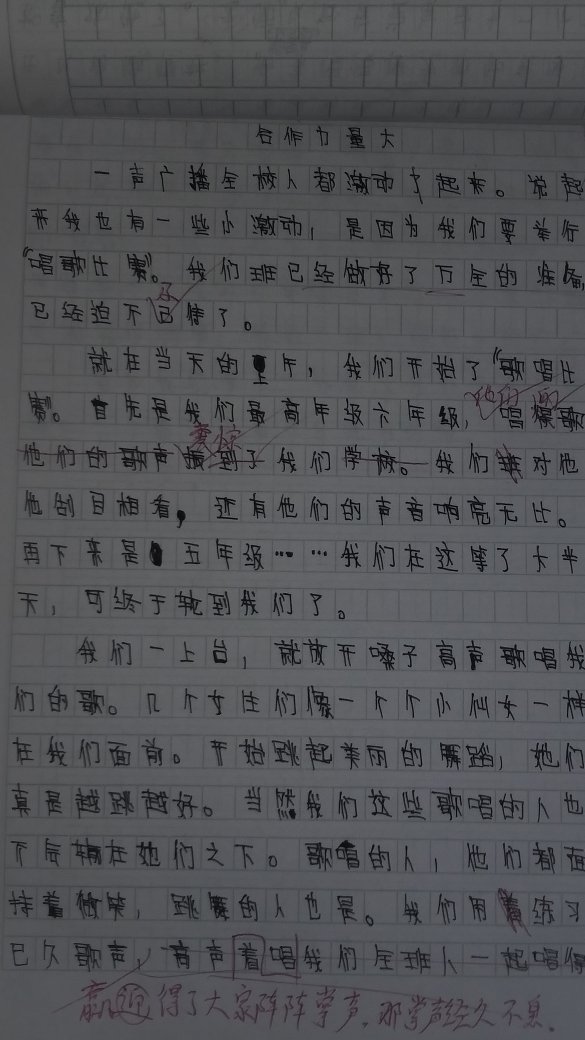 合作力量大
一声广播全校人都激动了起来。说起
来我也有一些小激动，是因为我们要举行
“唱歌比赛”。我们班已经做好了万全的准备，
还
已经迫不已待了。
就在当天的上午，我们开始了“歌唱比
赛”。首先是我们最高年级六年级，唱歌
震惊
他们的歌声震到了我们学校。我们对他
他刮目相看，还有他们的声音响亮无比。
再下来是五年级……我们在这等了大半
天，可终于轮到我们了。
我们一上台，就放开嗓子高声歌唱我
们的歌。几个女生们像一个个小仙女一样
在我们面前。开始跳起美丽的舞蹈，她们
真是越跳越好。当然我们这些歌唱的人也
不后输在她们之下。歌唱的人，他们都面
持着微笑，跳舞的人也是。我们用着练习
已久歌声，高声着唱我们全班人一起唱得
赢迎得了大家阵阵掌声，那掌声经久不息。